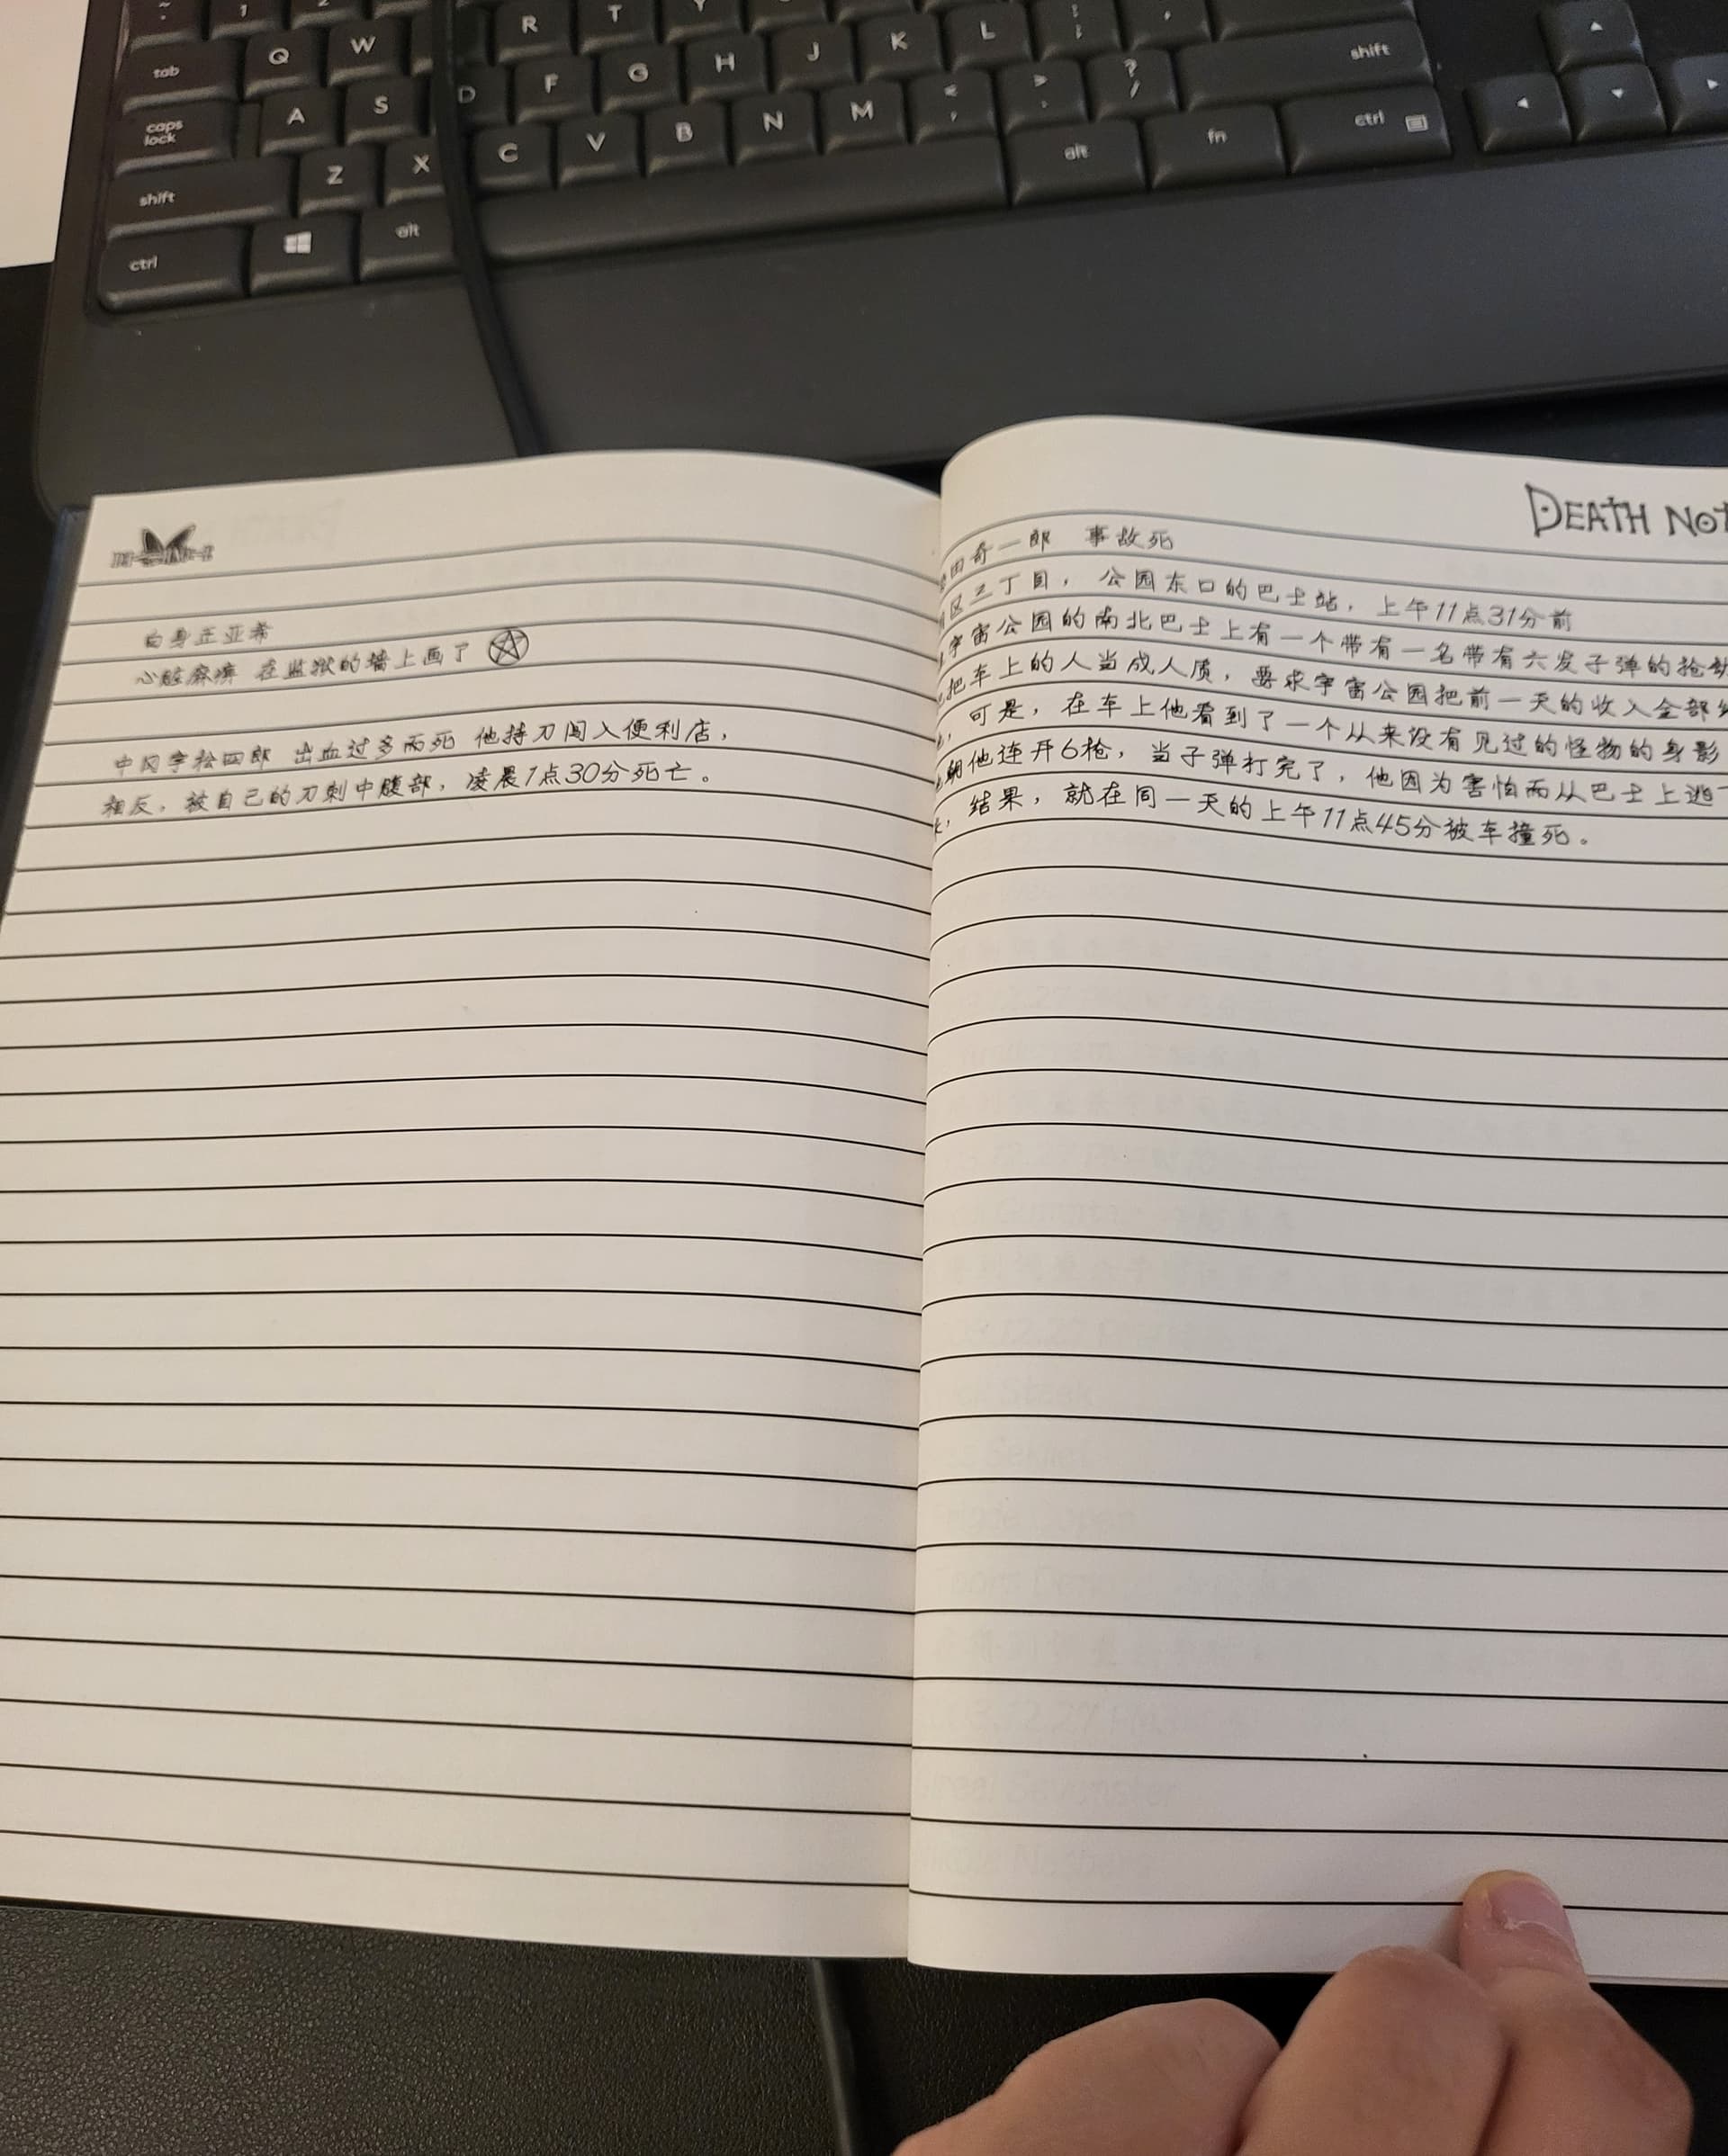 ~ 1 2
tab Q W R T Y
caps lock A S D F G H J K L : ;
shift Z X C V B N M < , > . ? / shift
ctrl alt alt fn ctrl
白身正亚希
心脏麻痹 在监狱的墙上画了
中冈字松四郎 出血过多而死 他持刀闯入便利店，
相反，被自己的刀刺中腹部，凌晨1点30分死亡。
DEATH NOT
田奇一郎 事故死
区三丁目，公园东口的巴士站，上午11点31分前
宇宙公园的南北巴士上有一个带有一名带有六发子弹的抢劫
把车上的人当成人质，要求宇宙公园把前一天的收入全部
，可是，在车上他看到了一个从来没有见过的怪物的身影
朝他连开6枪，当子弹打完了，他因为害怕而从巴士上逃
，结果，就在同一天的上午11点45分被车撞死。